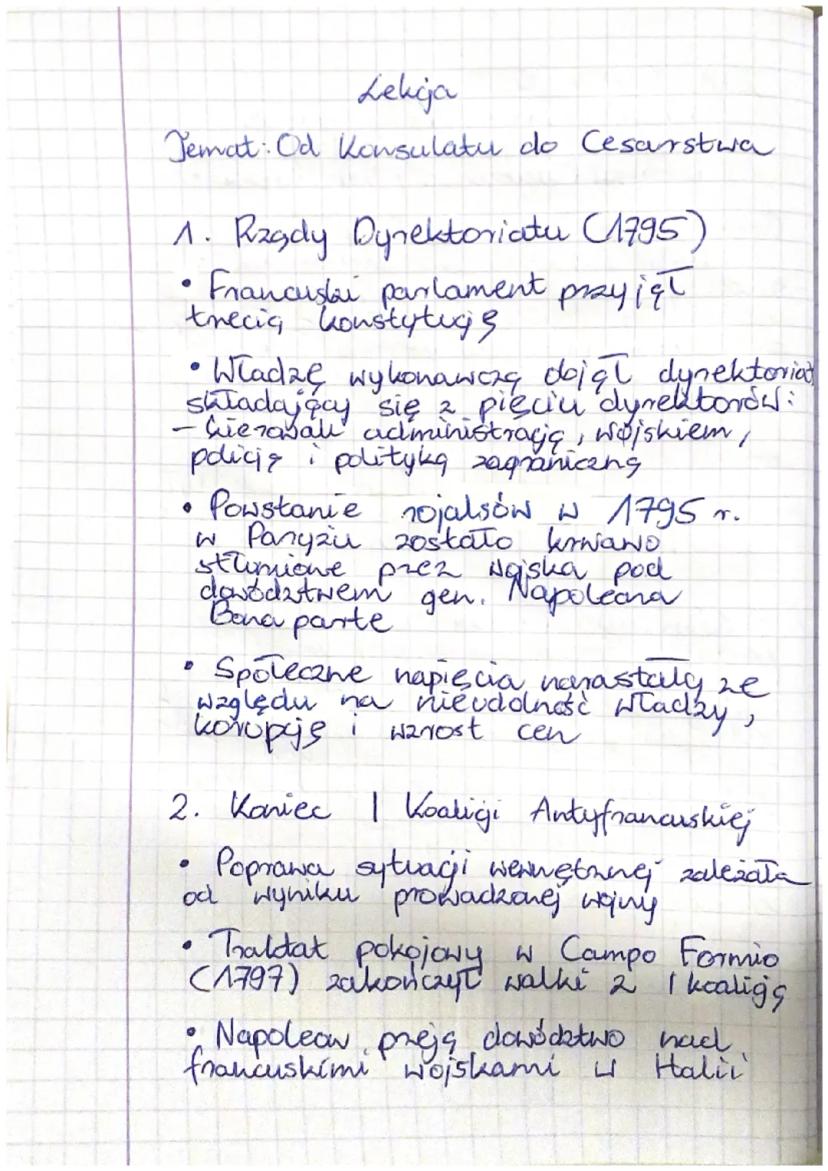 Lekcja
Temat: Od Konsulatu do Cesarstwa
1. Rządy Dyrektoriatu (1795)
• Francuski parlament przyjął
trzecią konstytucję
• Władzę wykonawczą dojął dyrektoriat
składający się z pięciu dyrektorów:
- kierowali administracją, wojskiem,
policją i polityką zagraniczną
• Powstanie rojalsów w 1795 r.
w Paryżu zostało krwawo
stłumione przez wojska pod
dowództwem gen. Napoleona
Bonaparte
• Społeczne napięcia narastały ze
względu na nieudolność władzy,
korupcję i wzrost cen
2. Koniec I Koalicji Antyfrancuskiej
• Poprawa sytuacji wewnętrznej zależała
od wyniku prowadzonej wojny
• Traktat pokojowy w Campo Formio
(1797) zakończył walki z I koalicją
• Napoleon przeją dowództwo nad
francuskimi wojskami w Italii